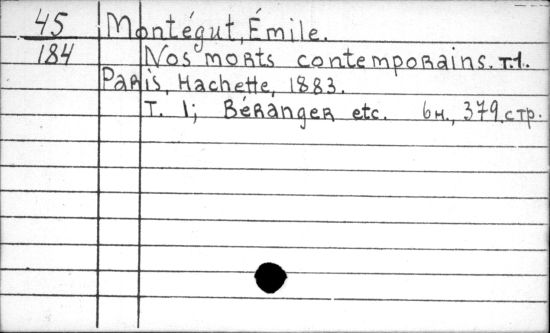 45 Montégut, Émile.
184 Nos morts contemporains. T.1.
Paris, Hachette, 1883.
T. 1; Béranger etc. 6н., 379 стр.